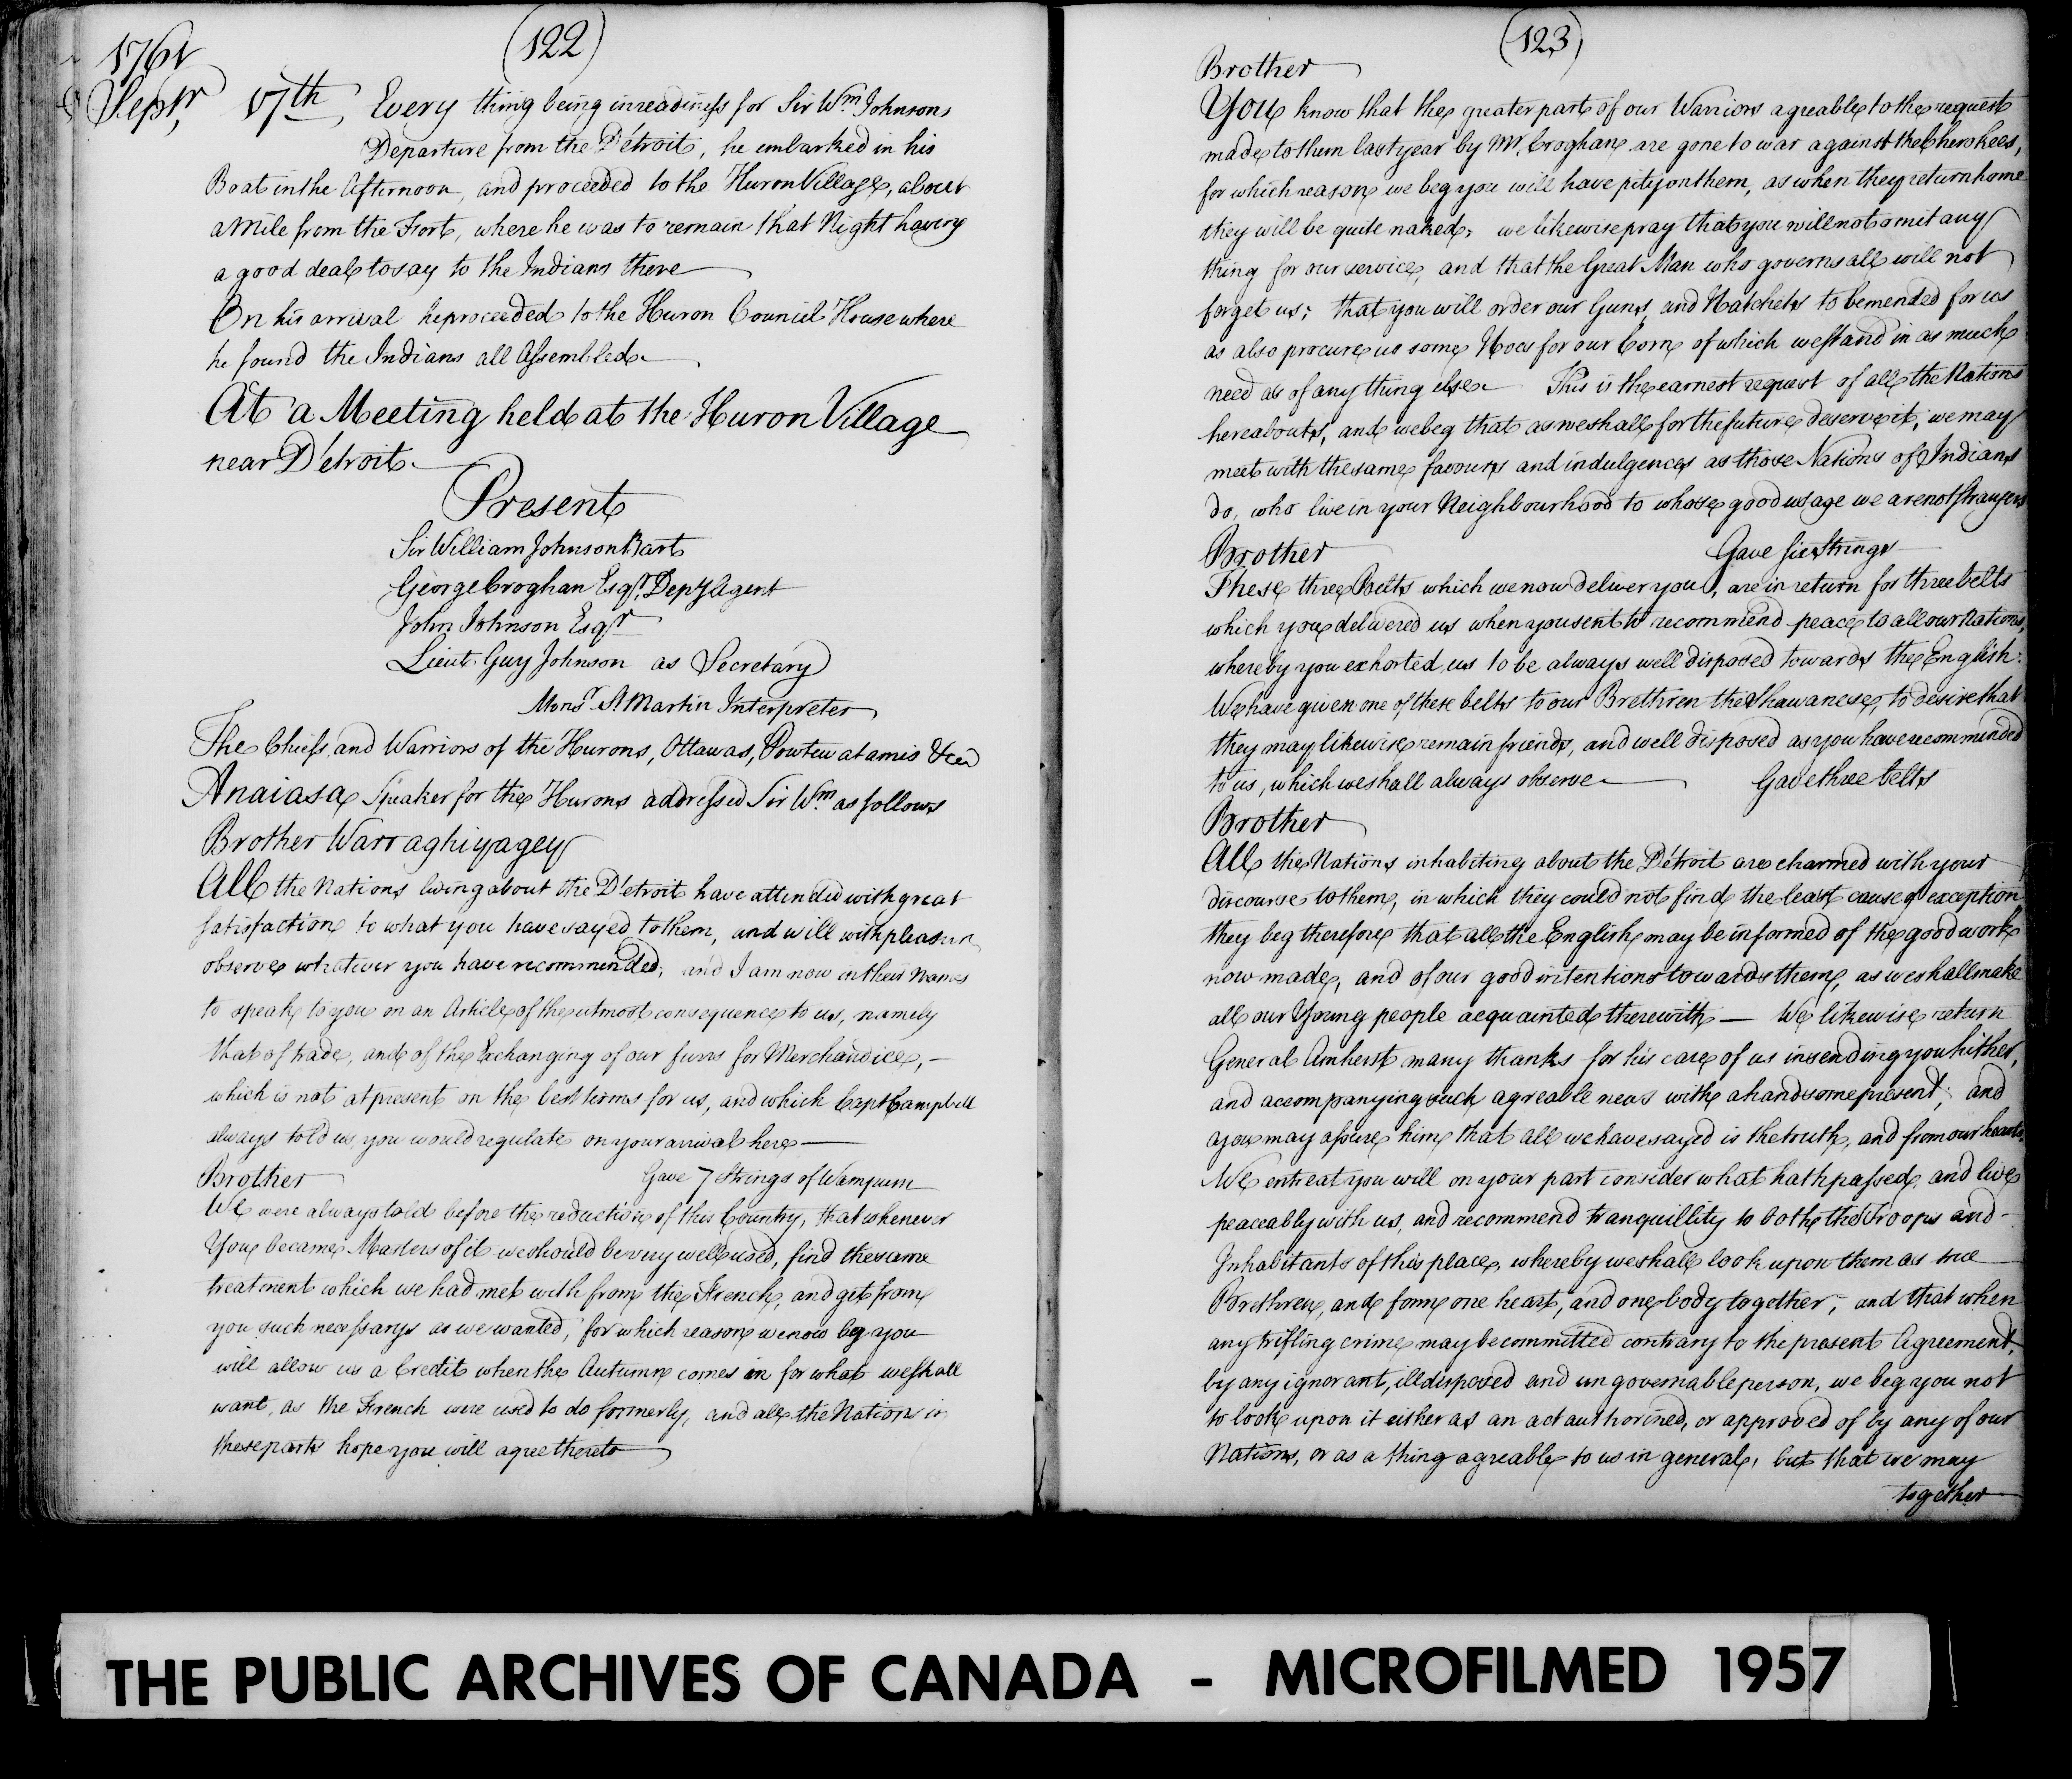 (122)
1761
Septr, 17th, Every thing being in readiness for Sir Wm. Johnsons
Departure from the D'etroit, he embarked in his
Boat in the Afternoon, and proceeded to the Huron Village, about
a Mile from the Fort, where he was to remain that Night having
a good deal to say to the Indians there
On his arrival he proceeded to the Huron Council House where
he found the Indians all Assembled
At a Meeting held at the Huron Village
near D'etroit
Present
Sir William Johnson Bart
George Croghan Esqr. Depy Agent
John Johnson Esqr
Lieut Guy Johnson as Secretary
Monsr. St Martin Interpreter
The Chiefs and Warriors of the Hurons, Ottawas, Powtewatamis &ca
Anaiasa Speaker for the Hurons addressed Sir Wm. as follows
Brother Warraghiyagey
All the Nations living about the D'etroit have attended with great
satisfaction to what you have sayed to them, and will with pleasure
observe whatever you have recommended, and I am now in their Names
to speak to you on an Article of the utmost consequence to us, namely
that of trade, and of the Exchanging of our furrs for Merchandice, -
which is not at present on the best terms for us, and which Capt Campbell
always told us you would regulate on your arrival here
Brother Gave 7 Strings of Wampum
We were always told before the reduction of this Country, that whenever
You became Masters of it we should be very well used, find the same
treatment which we had met with from the French, and get from
you such necessarys as we wanted, for which reason we now beg you
will allow us a Credit when the Autumn comes in for what we shall
want, as the French were used to do formerly, and all the Nations in
these parts hope you will agree thereto
(123)
Brother
You know that the greater part of our Warriors agreable to the request
made to them last year by Mr. Croghan are gone to war against the Cherokees,
for which reason we beg you will have pity on them, as when they return home
they will be quite naked; we likewise pray that you will not omit any
thing for our service, and that the Great Man who governs all will not
forget us; that you will order our Guns, and Hatchets to be mended for us
as also procure us some Hoes for our Corn of which we stand in as much
need as of any thing else This is the earnest request of all the Nations
hereabouts, and we beg that as we shall for the future deserve it, we may
meet with the same favours and indulgences as those Nations of Indians
do, who live in your Neighbourhood to whose good usage we are not strangers
Brother Gave six Strings
These three Belts which we now deliver you, are in return for three belts
which you delivered us when you sent to recommend peace to all our Nations,
whereby you exhorted us to be always well disposed towards the English:
We have given one of these belts to our Brethren the Shawanese, to desire that
they may likewise remain friends, and well disposed as you have recommended
to us, which we shall always observe Gave three belts
Brother
All the Nations inhabiting about the D'etroit are charmed with your
discourse to them, in which they could not find the least cause of exception
they beg therefore that all the English may be informed of the good work
now made, and of our good intentions towards them, as we shall make
all our Young people acquainted therewith — We likewise return
General Amherst many thanks for his care of us in sending you hither,
and accompanying such agreable news with a handsome present; and
you may assure him that all we have sayed is the truth, and from our hearts,
We entreat you will on your part consider what hath passed, and live
peaceably with us, and recommend tranquillity to both the Troops and -
Inhabitants of this place, whereby we shall look upon them as true
Brethren, and form one heart, and one body together; and that when
any trifling crime may be committed contrary to the present Agreement,
by any ignorant, illdisposed and ungovernable person, we beg you not
to look upon it either as an act authorised, or approved of by any of our
Nations, or as a thing agreable to us in general, but that we may
together
THE PUBLIC ARCHIVES OF CANADA - MICROFILMED 1957